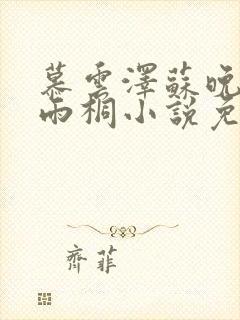 慕雲澤蘇晚
雨桐小說免
齊菲